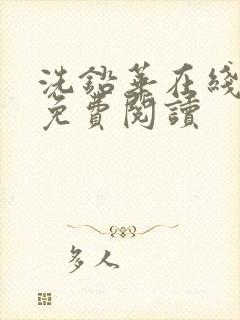 洗鉛華在綫
免費閱讀
多人